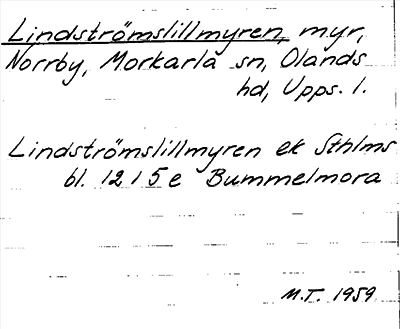 Lindströmslillmyren, myr,
Norrby, Morkarla sn, Olands
hd, Upps. l.
Lindströmslillmyren ek Sthlms
bl. 12 I 5 e Bummelmora
M.T. 1959